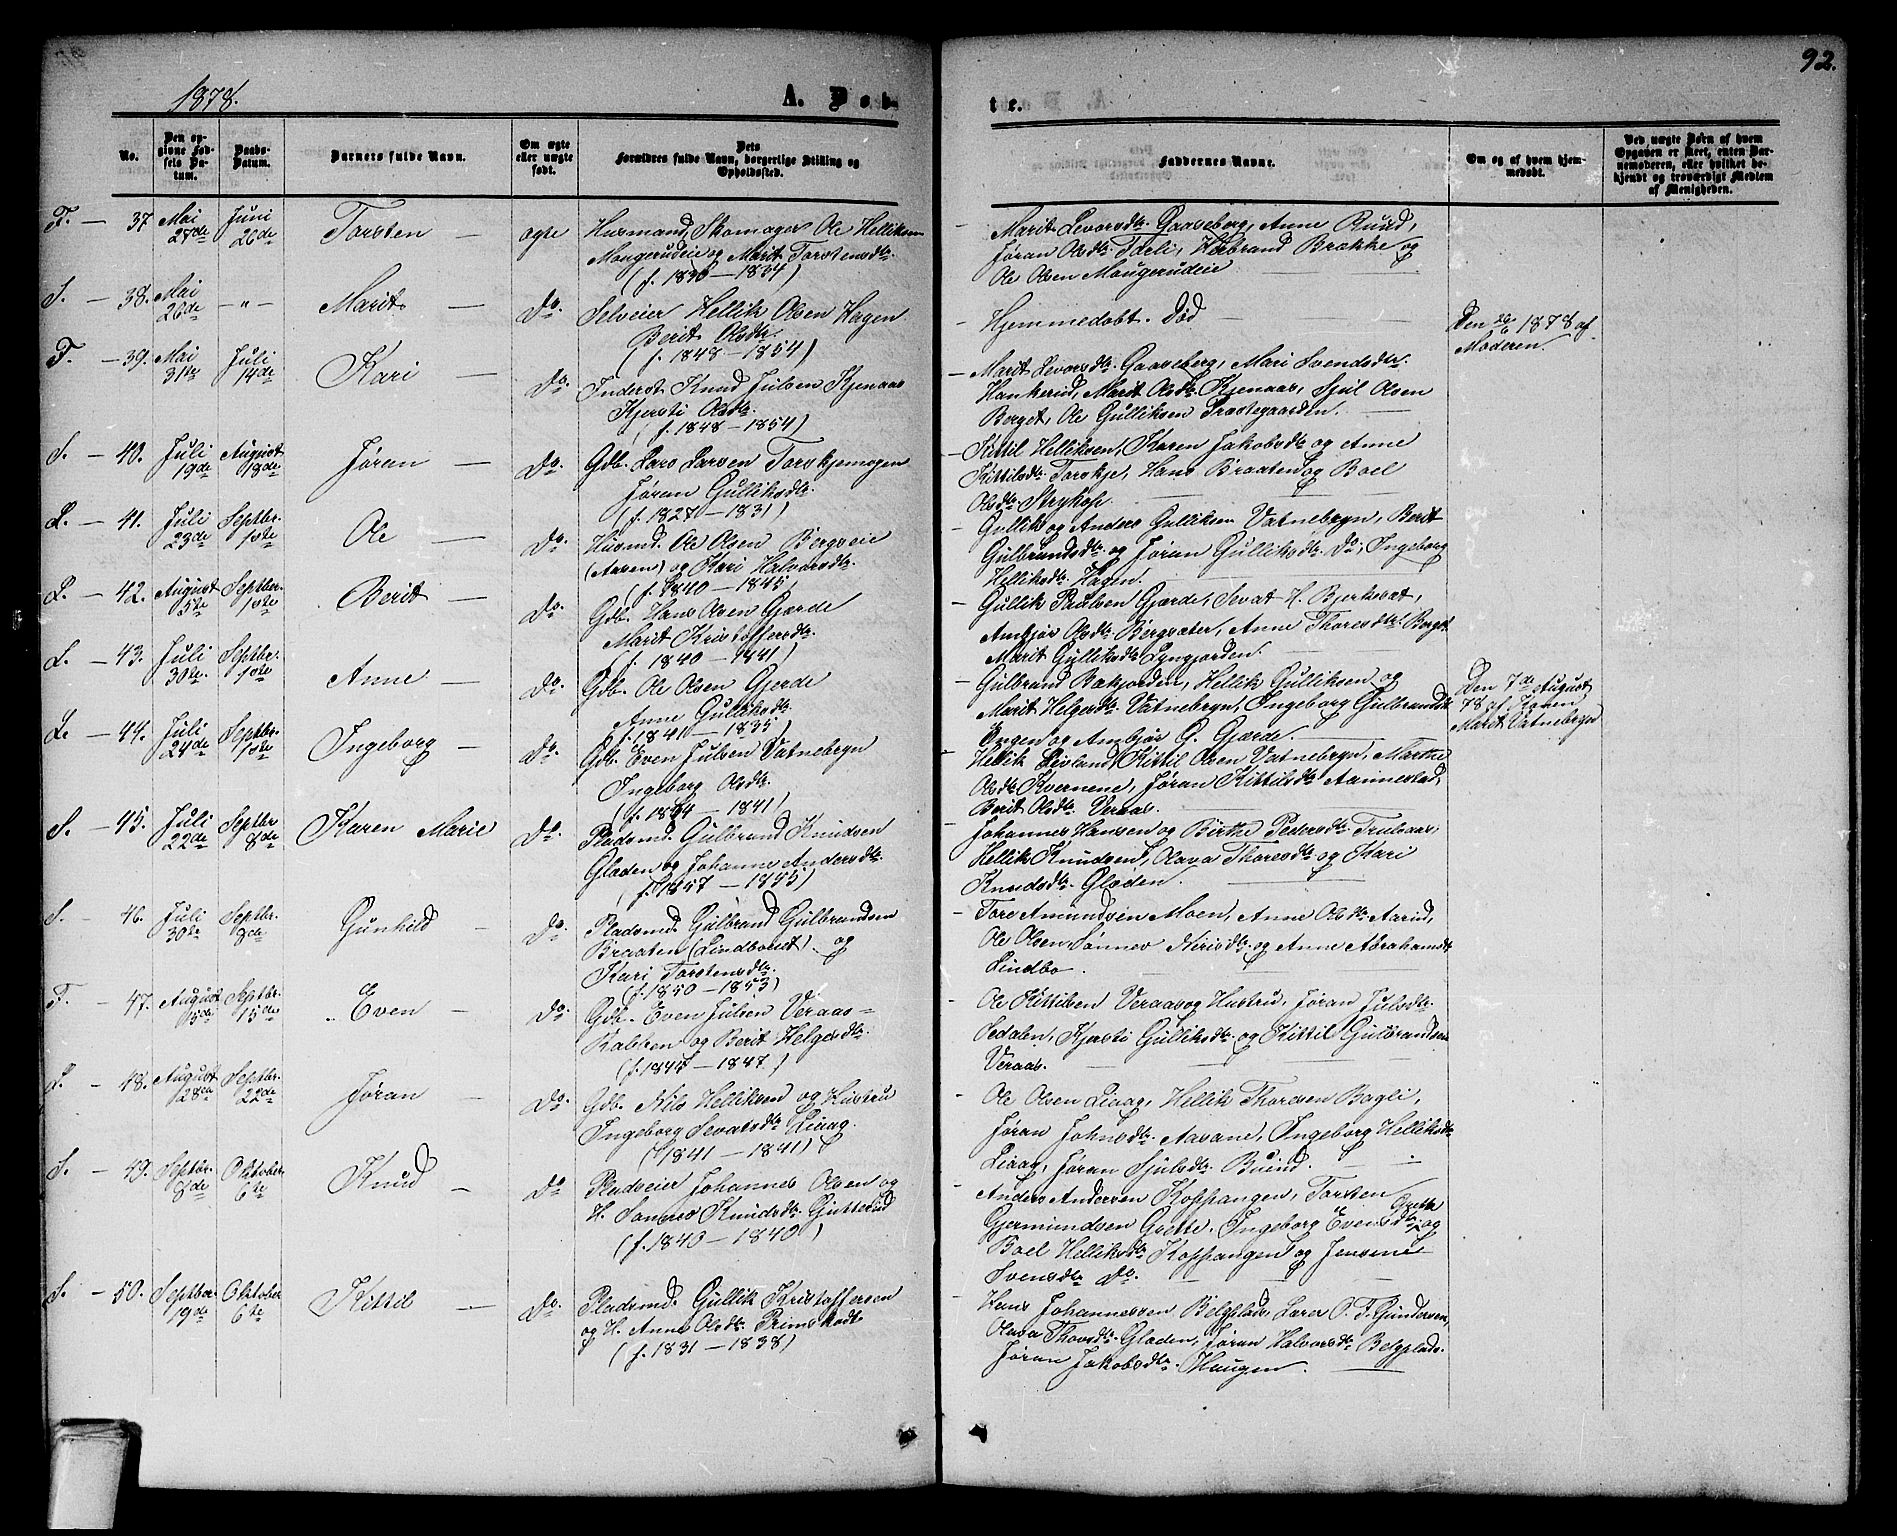 92.
1878.
A. Døb-
te.
No.
Den opgivne Fødsels Datum.
Daabs-Datum.
Barnets fulde Navn.
Om ægte eller uægte født.
Dets Forældres fulde Navn, borgerlige Stilling og Opholdssted.
Faddernes Navne.
Om og af hvem hjemmedøbt.
Ved uægte Børn af hvem Opgaven er skeet, enten Barnemoderen, eller hvilket bekjendt og troværdigt Medlem af Menigheden.
F. — 37 Mai 27de Juni 26de Torsten — ægte
Husmand, Skomager Ole Helliksen
Maugerudeie og Marit Torstensdtr.
(f. 1830 — 1834)
Marit Levorsdtr. Gaaseberg, Anne Ruud,
Jøran Olsdtr. Tdeli, Halbrand Brække og
Ole Olsen Maugerudeie
S. — 38. Mai 26de — " — Marit — Do.
Selveier Hellik Olsen Hagen
Berit Olsdtr.
(f. 1848 — 1854)
— Hjemmedøbt. Død —
Den 26/6 1878 af
Moderen.
F. — 39. Mai 31te Juli 14de Kari — Do.
Inderst Knud Julsen Kjenaas
Kjersti Olsdtr.
(f. 1848 — 1854)
— Marit Levorsdtr. Gaaseberg, Mari Svendsdtr.
Hankerud, Marit Olsdtr. Kjenaas, Sjul Olsen
Berget, Ole Gulliksen Præstegaarden. —
S. — 40. Juli 19de August 18de Jøran — Do.
Gdb. Lars Larsen Torskjemogen
Jøran Gulliksdtr.
(f. 1827 — 1831)
— Kittil Helliksen, Karen Jakobsdtr. og Anne
Kittilsdtr. Torskje, Hans Braaten og Boel
Olsdtr. Strykop. —
L. — 41. Juli 23de Septbr. 1ste Ole — Do.
Husmd. Ole Olsen Bergseie
(Aasen) og Kari Halvorsdtr.
(f. 1840 — 1845)
— Gullik og Anders Gulliksen Vatnebryn, Berit
Gulbrandsdtr. og Jøran Gulliksdtr. Do., Ingeborg
Helliksdtr. Hagen. —
L. — 42. August 5te Septber. 1ste Berit — Do.
Gdb. Hans Olsen Gjærde
Marit Kristoffersdtr.
(f. 1840 — 1841)
— Gullik Paulsen Gjærde, Sevat H. Bjerkesæt,
Ambjør Olsdtr. Bergsæter, Anne Thoresdtr. Berget
Marit Gulliksdtr. Lyngjorden. —
L. — 43. Juli 30te. Septbr. 1ste Anne — Do.
Gdb. Ole Olsen Gjerde
Anne Gulliksdtr.
(f. 1841 — 1835)
— Gulbrand Bækjorden, Hellik Gulliksen og
Marit Helgesdtr. Vatnebryn, Ingeborg Gulbrandsdtr.
Engen og Ambjør O. Gjærde. —
Den 7de August
78 af
Marit Vatnebryn
L. — 44. Juli 24de Septbr. 1ste Ingeborg — Do.
Gdb. Even Julsen Vatnebryn
Ingeborg Olsdtr.
(f. 1844 — 1841)
— Hellik Levland, Kittil Olsen Vatnebryn, Marthe
Olsdtr. Kvernene, Jøran Kittilsdtr. Aannestad,
Berit Olsdtr. Veraas. —
S. — 45. Juli 22de Septbr 8de Karen Marie — Do.
Pladsmd. Gulbrand Knudsen
Gladen og Johanne Andersdtr.
(f. 1857 — 1855)
Johannes Hansen og Birthe Pedersdtr. Trulsaas,
Hellik Knudsen, Olava Thoresdtr. og Kari
Knudsdtr. Gladen. —
S. — 46. Juli 30te Septbr. 8de Gunhild — Do.
Pladsmd. Gulbrand Gulbrandsen
Braaten (Lindboeiet) og
Kari Torstensdtr.
(f. 1850 — 1853)
— Tore Amundsen Moen, Anne Olsdtr. Aarud,
Ole Olsen, Sønnev Nirisdtr. og Anne Abrahamsdtr.
Lindbo. —
F. — 47. August 5de Septbr. 15de Even — Do.
Gdb. Even Julsen Veraas-
Kabben og Berit Helgesdtr.
(f. 1844 — 1847)
— Ole Kittilsen Veraas og Hustru, Jøran Julsdtr.
Sedalen, Kjersti Gulliksdtr. og Kittil Gulbrandsen
Veraas. —
L. — 48. August 28de Septbr. 22de Jøran — Do.
Gdb. Nils Helliksen og Hustru
Ingeborg Sevatsdtr. Liaag.
(1841 — 1841)
— Ole Olsen Liaag, Hellik Thordsen Bagli,
Jøran Johnsdtr. Aasane, Ingeborg Helliksdtr.
Liaag, Jøran Sjulsdtr. Buind. —
S. — 49. Septbr. 8de Oktober 6te Knud — Do.
Pladseier Johannes Olsen og
H. Sønnev Knudsdtr. Gutterud
(f. 1840 — 1840)
— Anders Andersen Koppangen, Torsten
Gjermundsen Gvette. Ingeborg Evensdtr. Gvette og
Boel Helliksdtr. Koppangen og Jensine
Svensdtr. Do. —
S. — 50. Septber 19de Oktober 6te Kittil — Do.
Pladsmd. Gullik Kristoffersen
og H. Anne Olsdtr. Primskodt
(f. 1831 — 1838)
— Hans Johannessen Belgplads, Lærer O. T. Gundersen,
Olava Thorsdtr. Gladen, Jøran Halvorsdtr. Belgplads.
Jøran Jakobsdtr. Haugen. —